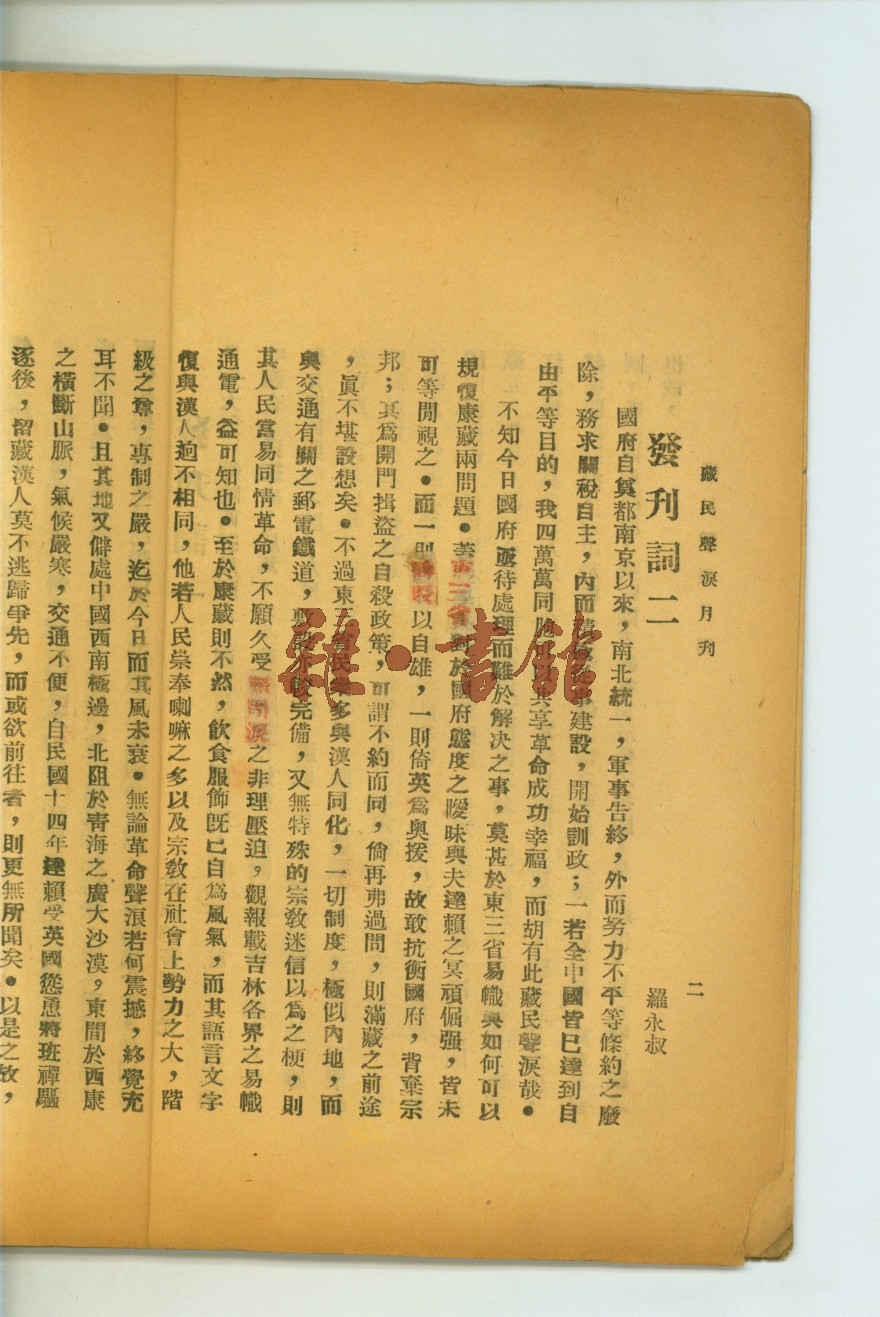 藏民聲淚月刊
二
發刊詞二
羅永叔
國府自奠都南京以來，南北統一，軍事告終，外而努力不平等條約之廢
除，務求關稅自主，內而積極從事建設，開始訓政；一若全中國皆已達到自
由平等目的，我四萬萬同胞可以共享革命成功幸福，而胡有此藏民聲淚哉。
不知今日國府亟待處理而難於解決之事，莫甚於東三省易幟與如何可以
規復康藏兩問題。蓋東三省對於國府態度之曖昧與夫達賴之冥頑倔强，皆未
可等閒視之。而一則以自雄，一則倚英爲奧援，故敢抗衡國府，背棄宗
邦；其爲開門揖盜之自殺政策，可謂不約而同，倘再弗過問，則滿藏之前途
，眞不堪設想矣。不過東三省民衆多與漢人同化，一切制度，極似內地，而
與交通有關之郵電鐵道，敷設亦較完備，又無特殊的宗敎迷信以爲之梗，則
其人民當易同情革命，不願久受之非理壓迫，觀報載吉林各界之易幟
通電，益可知也。至於康藏則不然，飲食服飾旣已自爲風氣，而其語言文字
復與漢人逈不相同，他若人民崇奉喇嘛之多以及宗敎在社會上勢力之大，階
級之尊，專制之嚴，迄於今日而其風未衰。無論革命聲浪若何震撼，終覺充
耳不聞。且其地又僻處中國西南極邊，北阻於靑海之廣大沙漠，東間於西康
之橫斷山脈，氣候嚴寒，交通不便，自民國十四年達賴受英國慫恿將班禪驅
逐後，留藏漢人莫不逃歸爭先，而或欲前往者，則更無所聞矣。以是之故，
雜·書館